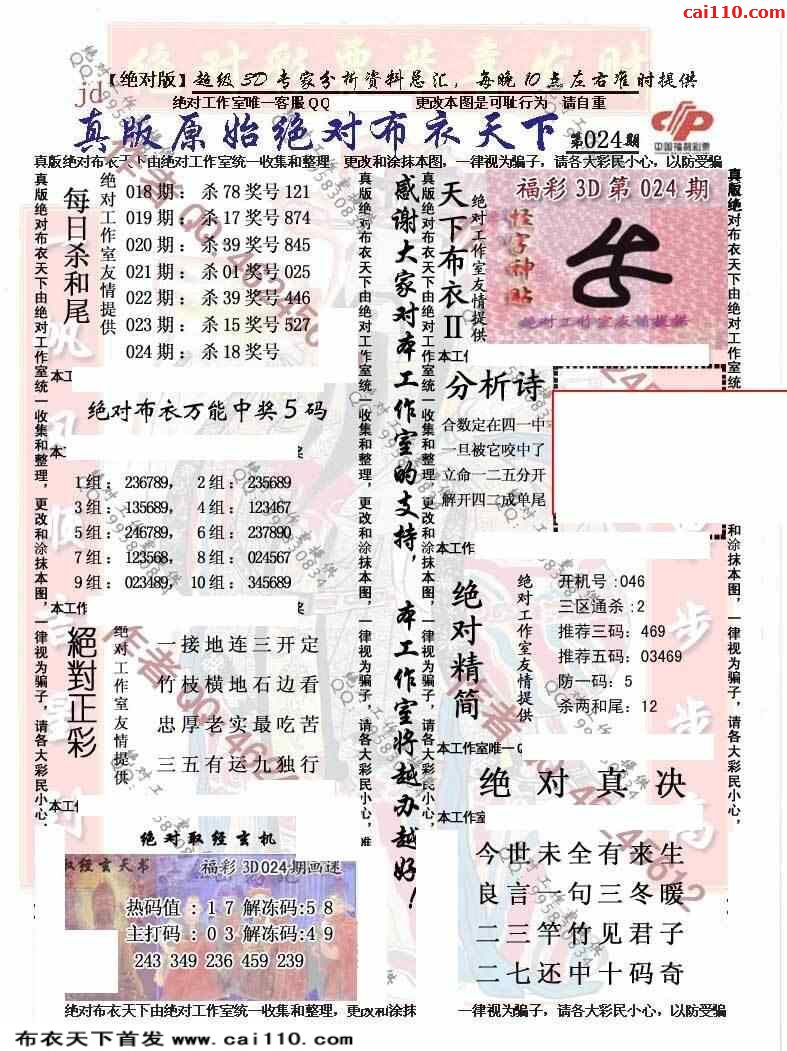 cai110.com
【绝对版】超级3D专家分析资料总汇，每晚10点左右准时提供
jd
绝对工作室唯一客服QQ 更改本图是可耻行为 请自重
真版原始绝对布衣天下 第024期
中国福利彩票
真版绝对布衣天下由绝对工作室统一收集和整理，更改和涂抹本图，一律视为骗子，请各大彩民小心，以防受骗
真版绝对布衣天下由绝对工作室统一收集和整理，更改和涂抹本图，一律视为骗子，请各大彩民小心，
每日杀和尾
绝对工作室友情提供
018期：杀78奖号121
019期：杀17奖号874
020期：杀39奖号845
021期：杀01奖号025
022期：杀39奖号446
023期：杀15奖号527
024期：杀18奖号
本工
绝对布衣万能中奖5码
本工
1组：236789， 2组：235689
3组：135689， 4组：123467
5组：246789， 6组：237890
7组：123568， 8组：024567
9组：023489， 10组：345689
本工作
絕對正彩
绝对工作室友情提供
一接地连三开定
竹枝横地石边看
忠厚老实最吃苦
三五有运九独行
本工作
绝对取经玄机
取经玄天书 福彩3D024期画谜
热码值：17解冻码:58
主打码：03解冻码:49
243 349 236 459 239
真版绝对布衣天下由绝对工作室统一收集和整理，更改和涂抹本图，一律视为骗子，请各大彩民小心，唯
感谢大家对本工作室的支持，本工作室将越办越好！
真版绝对布衣天下由绝对工作室统一收集和整理，更改和涂抹本图，一律视为骗子，请各大彩民小心，
天下布衣II
绝对工作室友情提供
福彩3D第024期
怪字神贴
绝对工作室友情提供
本工作
分析诗
合数定在四一中
一旦被它咬中了
立命一二五分开
解开四二成单尾
本工作
绝对精简
绝对工作室友情提供
开机号:046
三区通杀:2
推荐三码：469
推荐五码：03469
防一码：5
杀两和尾：12
本工作室唯一Q
绝对真决
本工作室
今世未全有来生
良言一句三冬暖
二三竿竹见君子
二七还中十码奇
真版绝对布衣天下由绝对工作室统一收集和整理，更改和涂抹本图，一律视为骗子，请各大彩民小心，
绝对布衣天下由绝对工作室统一收集和整理，更改和涂抹 一律视为骗子，请各大彩民小心，以防受骗
布衣天下首发 www.cai110.com